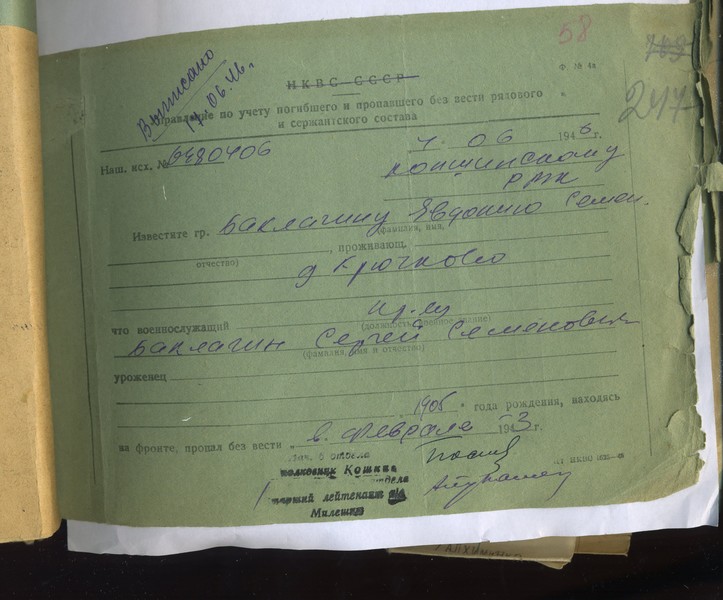 58
Выписано
17.06.46г.
НКВС СССР
Ф. № 4а
Управление по учету погибшего и пропавшего без вести рядового
и сержантского состава
Наш. исх. № 6480406
7. 06 1946 г.
РВК
Известите гр. Баклагину Евдокию Семен.
(фамилия, имя,
, проживающ.
отчество)
д Крючково
кр-ец
что военнослужащий
(должность, военное звание)
Баклагин Сергей Семенович
(фамилия, имя и отчество)
уроженец
1905 года рождения, находясь
на фронте, пропал без вести в феврале 1943 г.
отдела
полковник Кошкин
отдела
старший лейтенант а/с
Милешкин